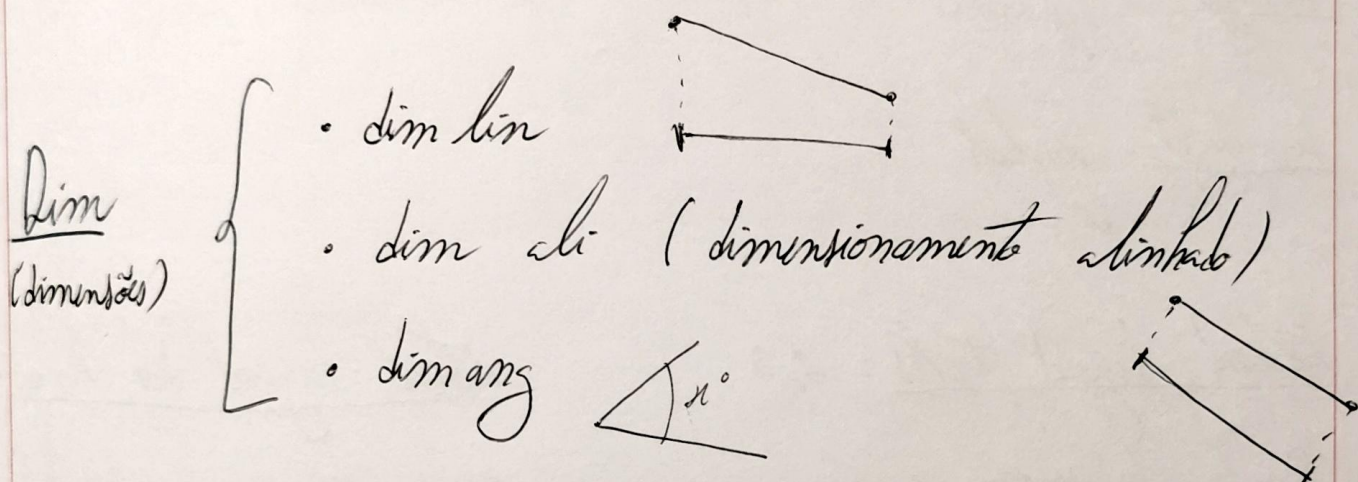 Dim
(dimensões)
• dim lin
• dim ali (dimensionamento alinhado)
• dimang
x°